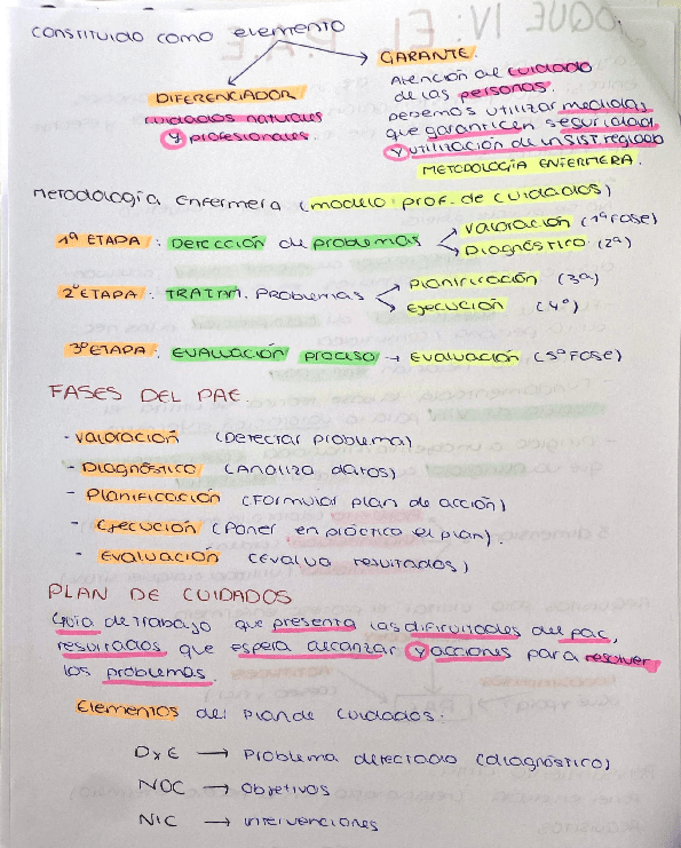 constituido como elemento
GARANTE.
Atención al cuidado
de las personas.
Debemos utilizar medidas
que garanticen seguridad
y utilización de un SIST. reglado
METODOLOGÍA ENFERMERA.
DIFERENCIADOR
cuidados naturales
y profesionales.
Metodología Enfermera (modelo prof. de cuidados)
1ª ETAPA: Detección de problemas
Valoración (1ª Fase)
Diagnóstico (2ª)
2º ETAPA: TRATAM. Problemas
Planificación (3ª)
Ejecución (4º)
3º ETAPA: EVALUACIÓN proceso → Evaluación (5º Fase)
FASES DEL PAE.
- Valoración (Detectar problema)
- Diagnóstico (Analiza datos)
- Planificación (Formular plan de acción)
- Ejecución (Poner en práctica el plan).
- Evaluación (Evalua resultados)
PLAN DE CUIDADOS
Guía de trabajo que presenta las dificultades del pac,
resultados que espera alcanzar y acciones para resolver
los problemas.
Elementos del plan de cuidados.
DxE → Problema detectado (diagnóstico)
NOC → Objetivos
NIC → Intervenciones